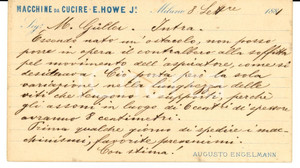 MACCHINE DA CUCIRE - E. HOWE Jr.
Milano 8 1881
Sig. M. Güller - Intra.
Essendo nato un ostacolo, non posso
porre in opera il contralbero alla soffitta
pel movimento dell'aspiratore, come si
desiderava. Ciò porta per la sola
variazione nella lunghezza delle
viti che tengono i supporti, poiché
gli assoni in luogo di centi di spessore
avranno 8 centimetri.
Prima qualche giorno di spedire i
, favorite prevenirmi.
Con stima.
AUGUSTO ENGELMANN